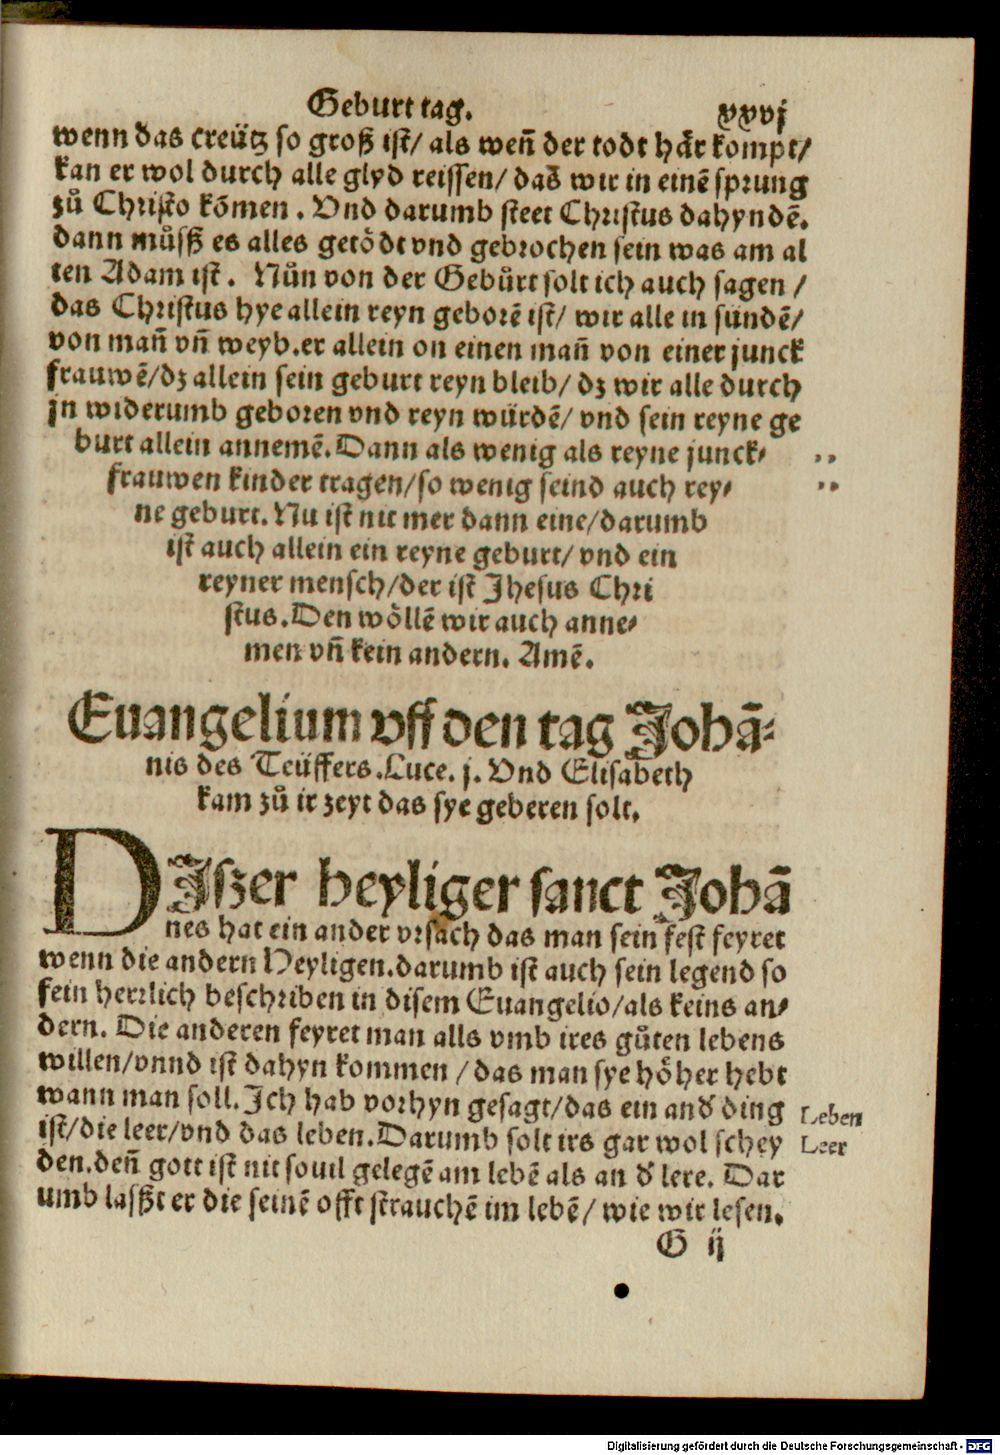 Geburt tag. xxvj
wenn das creütz so groß ist/ als weñ der todt här kompt/
kan er wol durch alle glyd reissen/ das wir in einē sprung
zů Christo kōmen. Vnd darumb steet Christus dahyndē.
dann můsß es alles getödt vnd gebrochen sein was am al
ten Adam ist. Nůn von der Gebůrt solt ich auch sagen /
das Christus hye allein reyn geborē ist/ wir alle in sündē/
von mañ vñ weyb. er allein on einen mañ von einer junck
frauwē/ dz allein sein geburt reyn bleib/ dz wir alle durch
jn widerumb geboren vnd reyn würdē/ vnd sein reyne ge
burt allein annemē. Dann als wenig als reyne junck⸗
frauwen kinder tragen/ so wenig seind auch rey⸗
ne geburt. Nu ist nit mer dann eine/ darumb
ist auch allein ein reyne geburt/ vnd ein
reyner mensch/ der ist Jhesus Chri
stus. Den wöllē wir auch anne⸗
men vñ kein andern. Amē.
Euangelium vff den tag Johā⸗
nis des Teüffers. Luce. j. Vnd Elisabeth
kam zů ir zeyt das sye geberen solt.
DJszer heyliger sanct Johā
nes hat ein ander vrsach das man sein fest feyret
wenn die andern Heyligen. darumb ist auch sein legend so
fein herrlich beschriben in disem Euangelio/ als keins an⸗
dern. Die anderen feyret man alls vmb ires gůten lebens
willen/ vnnd ist dahyn kommen / das man sye höher hebt
wann man soll. Ich hab vorhyn gesagt/ das ein and' ding
ist/ die leer/ vnd das leben. Darumb solt irs gar wol schey
den. deñ gott ist nit souil gelegē am lebē als an d' lere. Dar
umb lasßt er die seinē offt strauchē im lebē/ wie wir lesen.
Leben
Leer
G ij
Digitalisierung gefördert durch die Deutsche Forschungsgemeinschaft - DFG